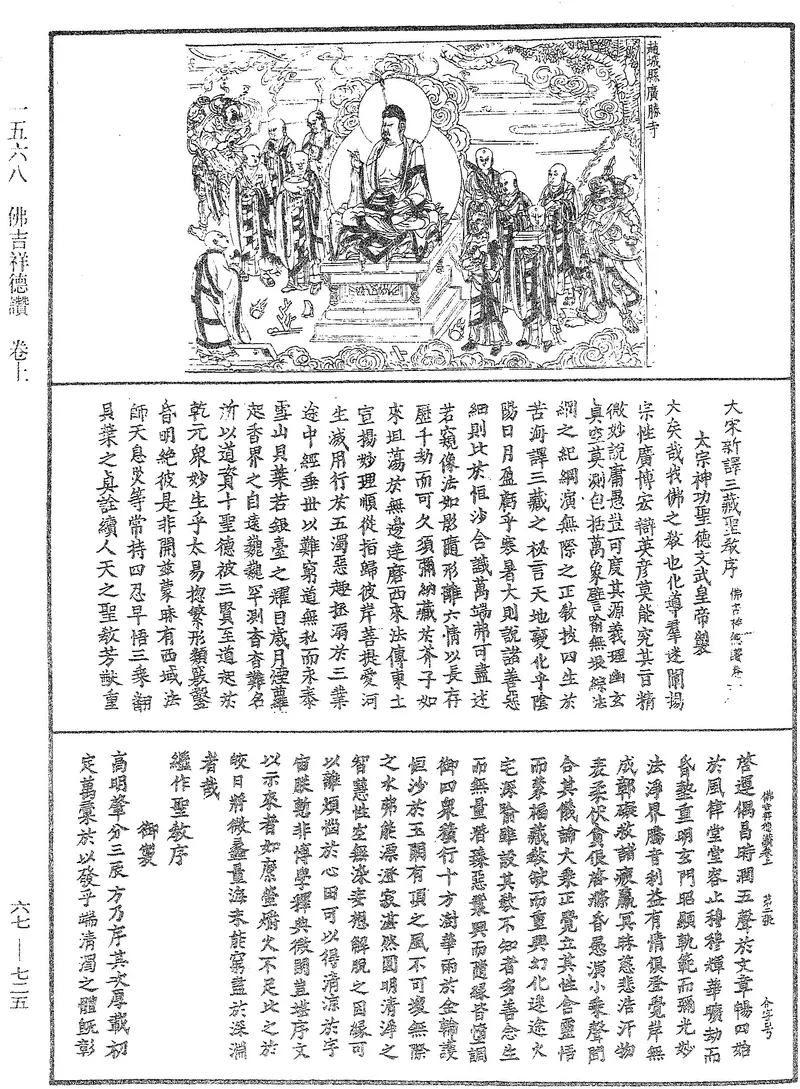 一五六八　佛吉祥德讚　卷上
趙城縣廣勝寺
大宋新譯三藏聖教序　佛吉祥德讚卷上
太宗神功聖德文武皇帝製
大矣哉我佛之教也化導羣迷闡揚
宗性廣博宏辯英彥莫能究其旨精
微妙說庸愚豈可度其源義理幽玄
真空莫測包括萬象譬喻無垠綜法
網之紀綱演無際之正教拔四生於
苦海譯三藏之祕言天地變化乎陰
陽日月盈虧乎寒暑大則說諸善惡
細則比於恒沙含識萬端弗可盡述
若窺像法如影隨形離六情以長存
歷千劫而可久須彌納藏於芥子如
來坦蕩於無邊達磨西來法傳東土
宣揚妙理順從指歸彼岸菩提愛河
生滅用行於五濁惡趣拯溺於三業
途中經垂世以難窮道無私而永泰
雪山貝葉若銀臺之耀目歲月煙蘿
起香界之自遠巍巍罕測杳杳難名
所以道資十聖德被三賢至道起於
乾元衆妙生乎太易揔繁形類竅鑿
昏明絕彼是非開茲蒙昧有西域法
師天息災等常持四忍早悟三乘翻
貝葉之真詮續人天之聖教芳猷重
佛吉祥德讚卷上　第二張　今字号
啓運偶昌時潤五聲於文章暢四始
於風律堂堂容止穆穆輝華曠劫而
昏墊重明玄門昭顯軌範而彌光妙
法淨界騰音利益有情俱登覺岸無
成鄣礙救諸疲羸冥昧慈悲浩汗物
表柔伏貪很啓滌昏愚演小乘聲聞
合其儀論大乘正覺立其性含靈悟
而蒙福藏教缺而重興幻化迷途火
宅深喻雖設其教不知者多善念生
而無量潛臻惡業興而隨緣皆墮調
御四衆積行十方澍華雨於金輪護
恒沙於玉闕有頂之風不可壞無際
之水弗能漂澄寂湛然圓明清淨之
智慧性空無染妄想解脫之因緣可
以離煩惱於心田可以得清涼於宇
宙朕慙非博學釋典微閑豈堪序文
以示來者如縻螢爝火不足比之於
皎日將微蠡量海未能窮盡於深淵
者哉
繼作聖教序
御製
高明肇分三辰方乃序其次厚載初
定萬彙於以發乎端清濁之體旣彰
六七—七二五